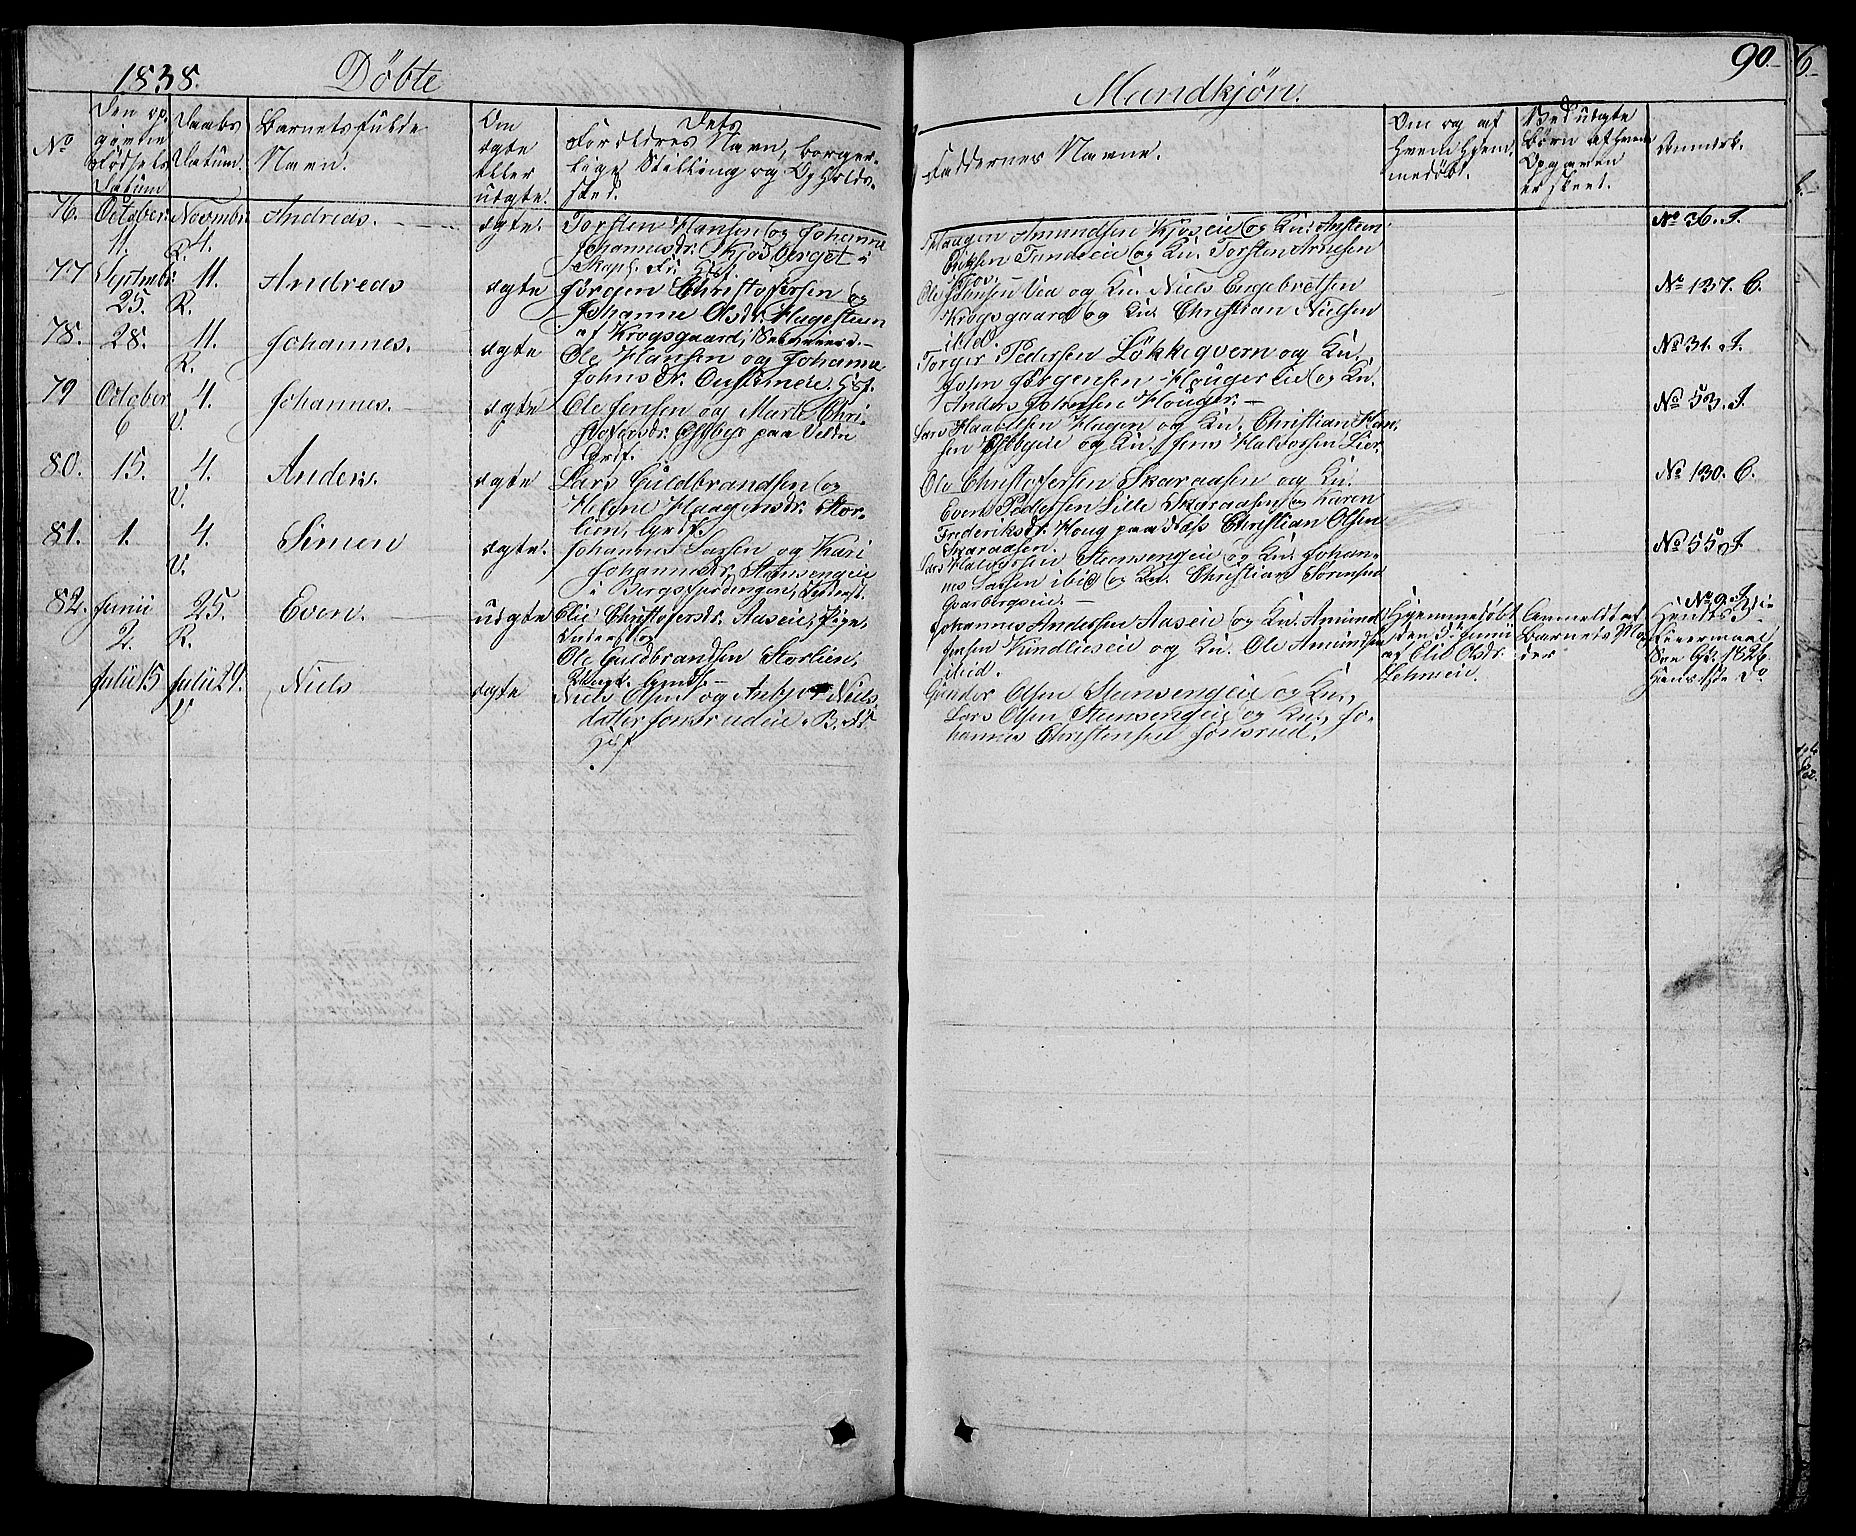 1838. Döbte Mandkjøn. 90.
No
Den op-
givne
Födsels
Datum
Daabs
Datum.
Barnets fulde
Navn.
Om
ægte
eller
uægte.
Dets
Forældres Navn, borger-
lige Stilling og Opholds-
sted.
Faddernes Navne.
Om og af
hvem hjem-
medöbt.
Ved uægte
Börn af hvem
Opgaven
er skeet.
Anmærk.
76. October 11. Novmbr. R. 4. Andreas. ægte.
Torsten Hansen og Johanne
Johannesdr. Skjösberget i
Haagen Amundsen Kjöseie og Ku. Austen
Eriksen Tundeeie og Ku. Torsten Arnesen
Kjos.
No 36. J.
77 Septmbr. 25. 11. R. Andreas ægte
Jörgen Christofersen og
Johanne Olsdr. Hagestuen
af Krogsgaard,
Ole Jensen Vea og Ku. Niels Engebretsen
Krogsgaard og Ku. Christian Nielsen
ibid.
No 137. C.
78. 28. 11. R. Johannes. ægte
Ole Hansen og Johanne
Johnsdr.
Torger Pedersen Lökkeqvern og Ku.
John Jörgensen Hougerlie og Ku.
Anders Johnsen Houger.
No 31. J.
79 October 6 4. V. Johannes. ægte
Ole Jensen og Marte Chri-
stofersdr. Östbye paa Velde
Grif.
Lars Haagensen Hagen og Ku. Christian Han-
sen Östbyeie og Ku. Jens Halvorsen Lier.
No 53. J.
80. 15. 4. V. Anders. ægte
Lars Guldbrandsen og
Helene Haagensdr. Stor-
lien,
Ole Christofersen Skaraasen og Ku.
Even Pedersen Lille Skaraasen og Karen
Frederiksdr. Houg paa Næss Christian Olsen
Skaraasen.
No 130. C.
81. 1. 4. V. Simen ægte.
Johannes Larsen og Kari
Johannesdr. Stensengeie
i
Lars Halvorsen Stensengeie og Ku. Johan-
nes Larsen ibid og Ku. Christian Sörensen
Gaarbergseie.
No 55. J.
82. Junii 2. 25. R. Even. uægte
Elie Christofersdr. Aaseie, Pige,
Ole Guldbrandsen Storlien,
Johannes Andersen Aaseie og Ku. Amund
Jensen Kindlieeie og Ku. Ole Amundsen
ibid.
Hjemmedöbt
den 3die Junii
af Elie Olsdr.
Anmeldt af
Barnets Mo-
der
No 9. J.
Hendes 3die
Leiermaal
Hans 1ste Do
Julii 15 Julii 29. V Niels ægte
Niels Olsen og Niels-
datter Jonsrudeie
Gunder Olsen Stensengeie og Ku.,
Lars Olsen Stensengeie og Ku., Jo-
hannes Christensen Jonsrud.